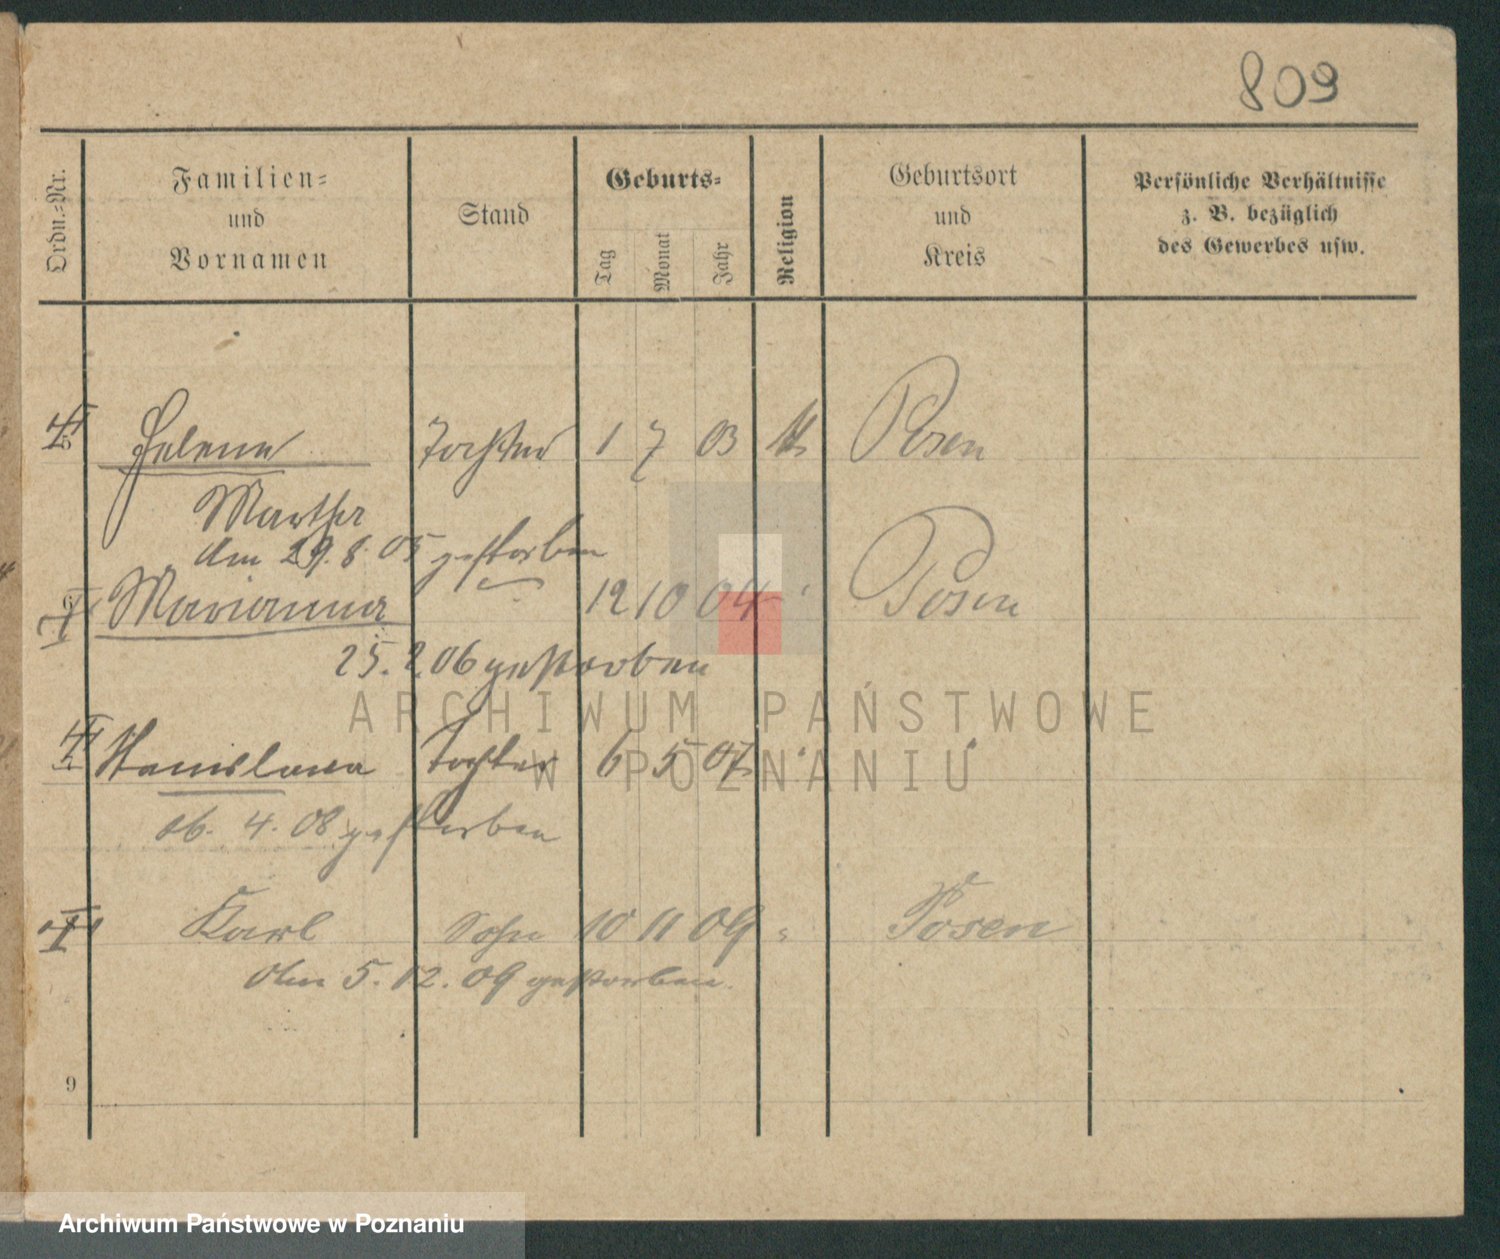 809
Ordn.-Nr.
Familien-
und
Vornamen
Stand
Geburts-
Tag
Monat
Jahr
Religion
Geburtsort
und
Kreis
Persönliche Verhältnisse
z. B. bezüglich
des Gewerbes usw.
5 Helene Tochter 1 7 03 k Posen
Martha
Am 29. 8. 05 gestorben
6 Marianna 12 10 04 Posen
25. 2. 06 gestorben
7 Stanislawa Tochter 6 5 07
ARCHIWUM PAŃSTWOWE
W POZNANIU
4. 08 gestorben
8 Karl Sohn 10 11 09 " Posen
Am 5. 12. 09 gestorben.
9
Archiwum Państwowe w Poznaniu